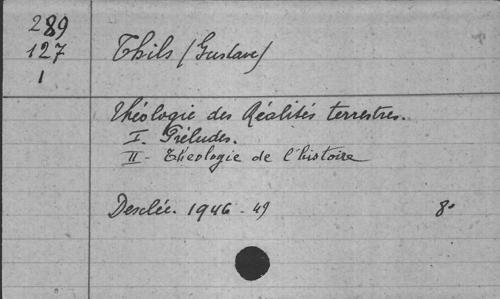 289
127
1
Thils (Gustave)
Théologie des Réalités terrestres.
I. Préludes.
II - Théologie de l'histoire
Desclée. 1946 - 49 8°